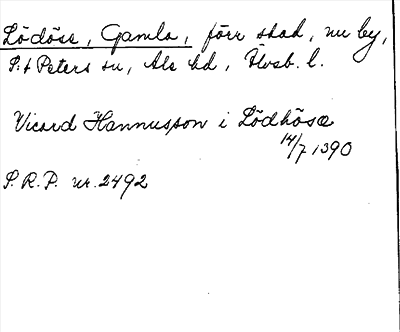 Lödöse, Gamla, förr stad, nu by,
S:t Peters sn, Ale hd, Älvsb. l.
Vicard Hannusson i Lödhösæ
14/7 1390
S.R.P. nr. 2492